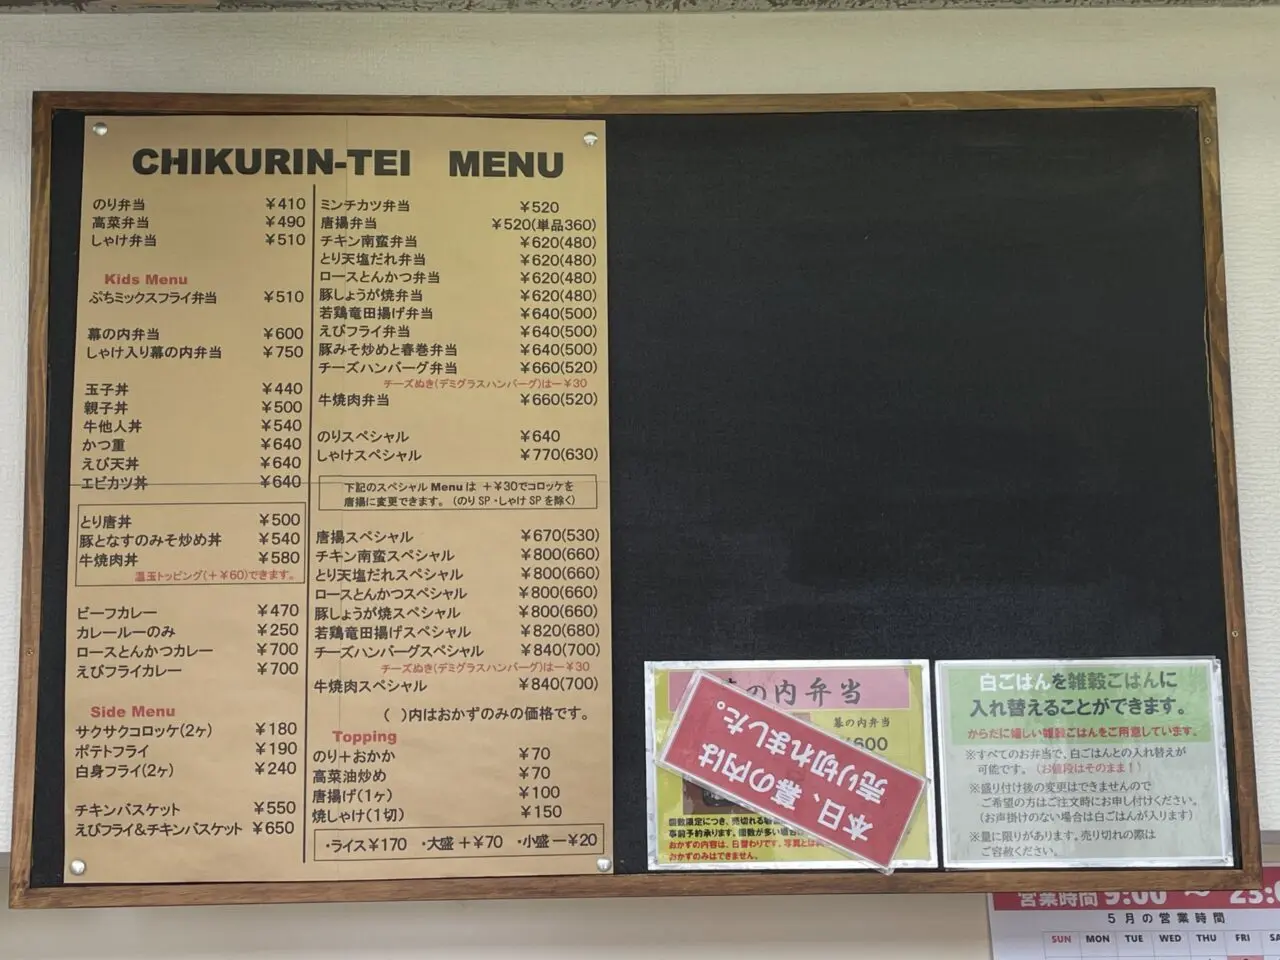 CHIKURIN-TEI MENU
のり弁当 ¥410
高菜弁当 ¥490
しゃけ弁当 ¥510
Kids Menu
ぷちミックスフライ弁当 ¥510
幕の内弁当 ¥600
しゃけ入り幕の内弁当 ¥750
玉子丼 ¥440
親子丼 ¥500
牛他人丼 ¥540
かつ重 ¥640
えび天丼 ¥640
エビカツ丼 ¥640
とり唐丼 ¥500
豚となすのみそ炒め丼 ¥540
牛焼肉丼 ¥580
温玉トッピング(+¥60)できます。
ビーフカレー ¥470
カレールーのみ ¥250
ロースとんかつカレー ¥700
えびフライカレー ¥700
Side Menu
サクサクコロッケ(2ヶ) ¥180
ポテトフライ ¥190
白身フライ(2ヶ) ¥240
チキンバスケット ¥550
えびフライ&チキンバスケット ¥650
ミンチカツ弁当 ¥520
唐揚弁当 ¥520(単品360)
チキン南蛮弁当 ¥620(480)
とり天塩だれ弁当 ¥620(480)
ロースとんかつ弁当 ¥620(480)
豚しょうが焼弁当 ¥620(480)
若鶏竜田揚げ弁当 ¥640(500)
えびフライ弁当 ¥640(500)
豚みそ炒めと春巻弁当 ¥640(500)
チーズハンバーグ弁当 ¥660(520)
チーズぬき(デミグラスハンバーグ)はー¥30
牛焼肉弁当 ¥660(520)
のりスペシャル ¥640
しゃけスペシャル ¥770(630)
下記のスペシャル Menu は +¥30でコロッケを
唐揚に変更できます。(のり SP・しゃけ SP を除く)
唐揚スペシャル ¥670(530)
チキン南蛮スペシャル ¥800(660)
とり天塩だれスペシャル ¥800(660)
ロースとんかつスペシャル ¥800(660)
豚しょうが焼スペシャル ¥800(660)
若鶏竜田揚げスペシャル ¥820(680)
チーズハンバーグスペシャル ¥840(700)
チーズぬき(デミグラスハンバーグ)はー¥30
牛焼肉スペシャル ¥840(700)
( )内はおかずのみの価格です。
Topping
のり+おかか ¥70
高菜油炒め ¥70
唐揚げ(1ヶ) ¥100
焼しゃけ(1切) ¥150
・ライス¥170 ・大盛+¥70 ・小盛ー¥20
の内弁当
幕の内弁当
600
本日、幕の内は
売り切れました。
個数限定につき、売切れる
事前予約承ります。個数が多い場合
おかずの内容は、日替わりです。写真とは
おかずのみはできません。
白ごはんを雑穀ごはんに
入れ替えることができます。
からだに嬉しい雑穀ごはんをご用意しています。
※すべてのお弁当で、白ごはんとの入れ替えが
可能です。(お値段はそのまま!)
※盛り付け後の変更はできませんので
ご希望の方はご注文時にお申し付けください。
(お声掛けのない場合は白ごはんが入ります)
※量に限りがあります。売り切れの際は
ご容赦ください。
営業時間 9:00 ～ 23:0
5月の営業時間
SUN MON TUE WED THU FRI SA